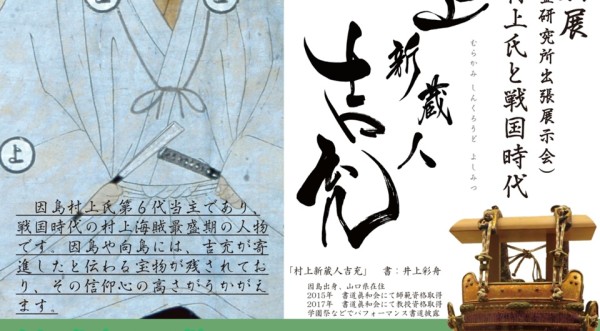 展
研究所出張展示会)
村上氏と戦国時代
上
新蔵人
吉充
むらかみ しんくろうど よしみつ
上
因島村上氏第6代当主であり、
戦国時代の村上海賊最盛期の人物
です。因島や向島には、吉充が寄
進したと伝わる宝物が残されてお
り、その信仰心の高さがうかがえ
ます。
「村上新蔵人吉充」 書:井上彩舟
因島出身、山口県在住
2015年 書道眞和会にて師範資格取得
2017年 書道眞和会にて教授資格取得
学園祭などでパフォーマンス書道披露